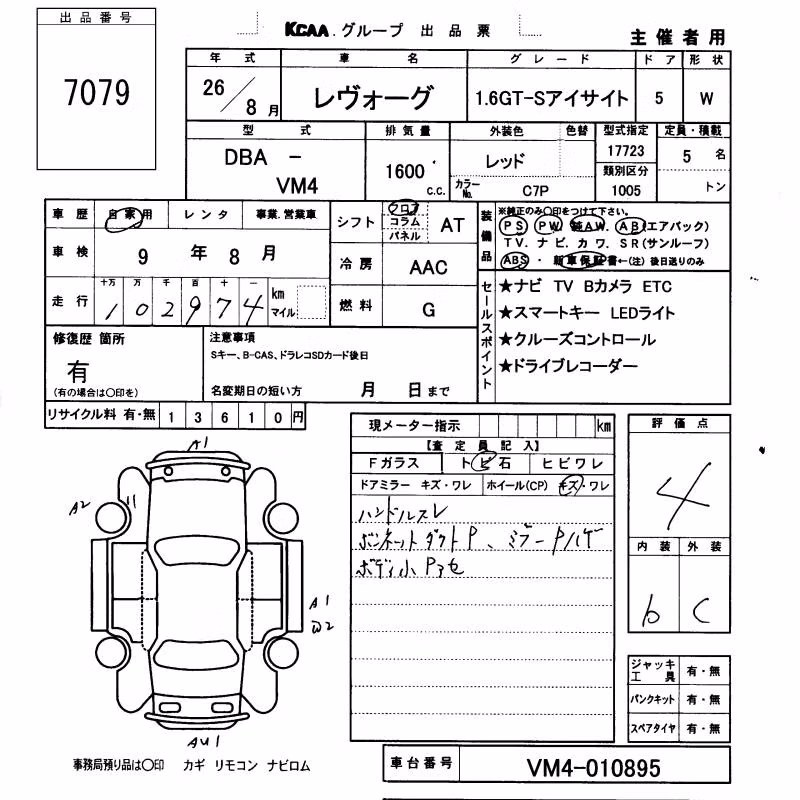 出品番号
7079
KCAA.グループ 出品票
主催者用
年式 車名 グレード ドア 形状
26/8月 レヴォーグ 1.6GT-Sアイサイト 5 W
型式 排気量 外装色 色替 型式指定 定員・積載
DBA - 1600 c.c. レッド 17723 5名
VM4 カラーNo. C7P 類別区分 1005 トン
車歴 自家用 レンタ 事業.営業車
シフト フロア コラム パネル AT
装備品
※純正のみ〇印をつけて下さい。
PS PW 純AW. AB(エアバック)
TV. ナビ. カワ. SR(サンルーフ)
ABS・新車保証書←(注) 後日送りのみ
車検 9年8月
冷房 AAC
走行 十万 万 千 百 十 一 km マイル
102974
燃料 G
セールスポイント
★ナビ TV Bカメラ ETC
★スマートキー LEDライト
★クルーズコントロール
★ドライブレコーダー
修復歴 箇所
有
(有の場合は〇印を)
注意事項
Sキー、B-CAS、ドラレコSDカード後日
名変期日の短い方 月 日まで
リサイクル料 有・無 13610円
現メーター指示 km
【査定員記入】
Fガラス トビ石 ヒビワレ
ドアミラー キズ・ワレ ホイール(CP) キズ・ワレ
ハンドルスレ
ボンネットダクトP、ミラーPハゲ
ボディ小Pアセ
評価点
4
内装 外装
b C
ジャッキ工具 有・無
パンクキット 有・無
スペアタイヤ 有・無
A1
A2
A1
W2
AU1
事務局預り品は〇印 カギ リモコン ナビロム
車台番号 VM4-010895